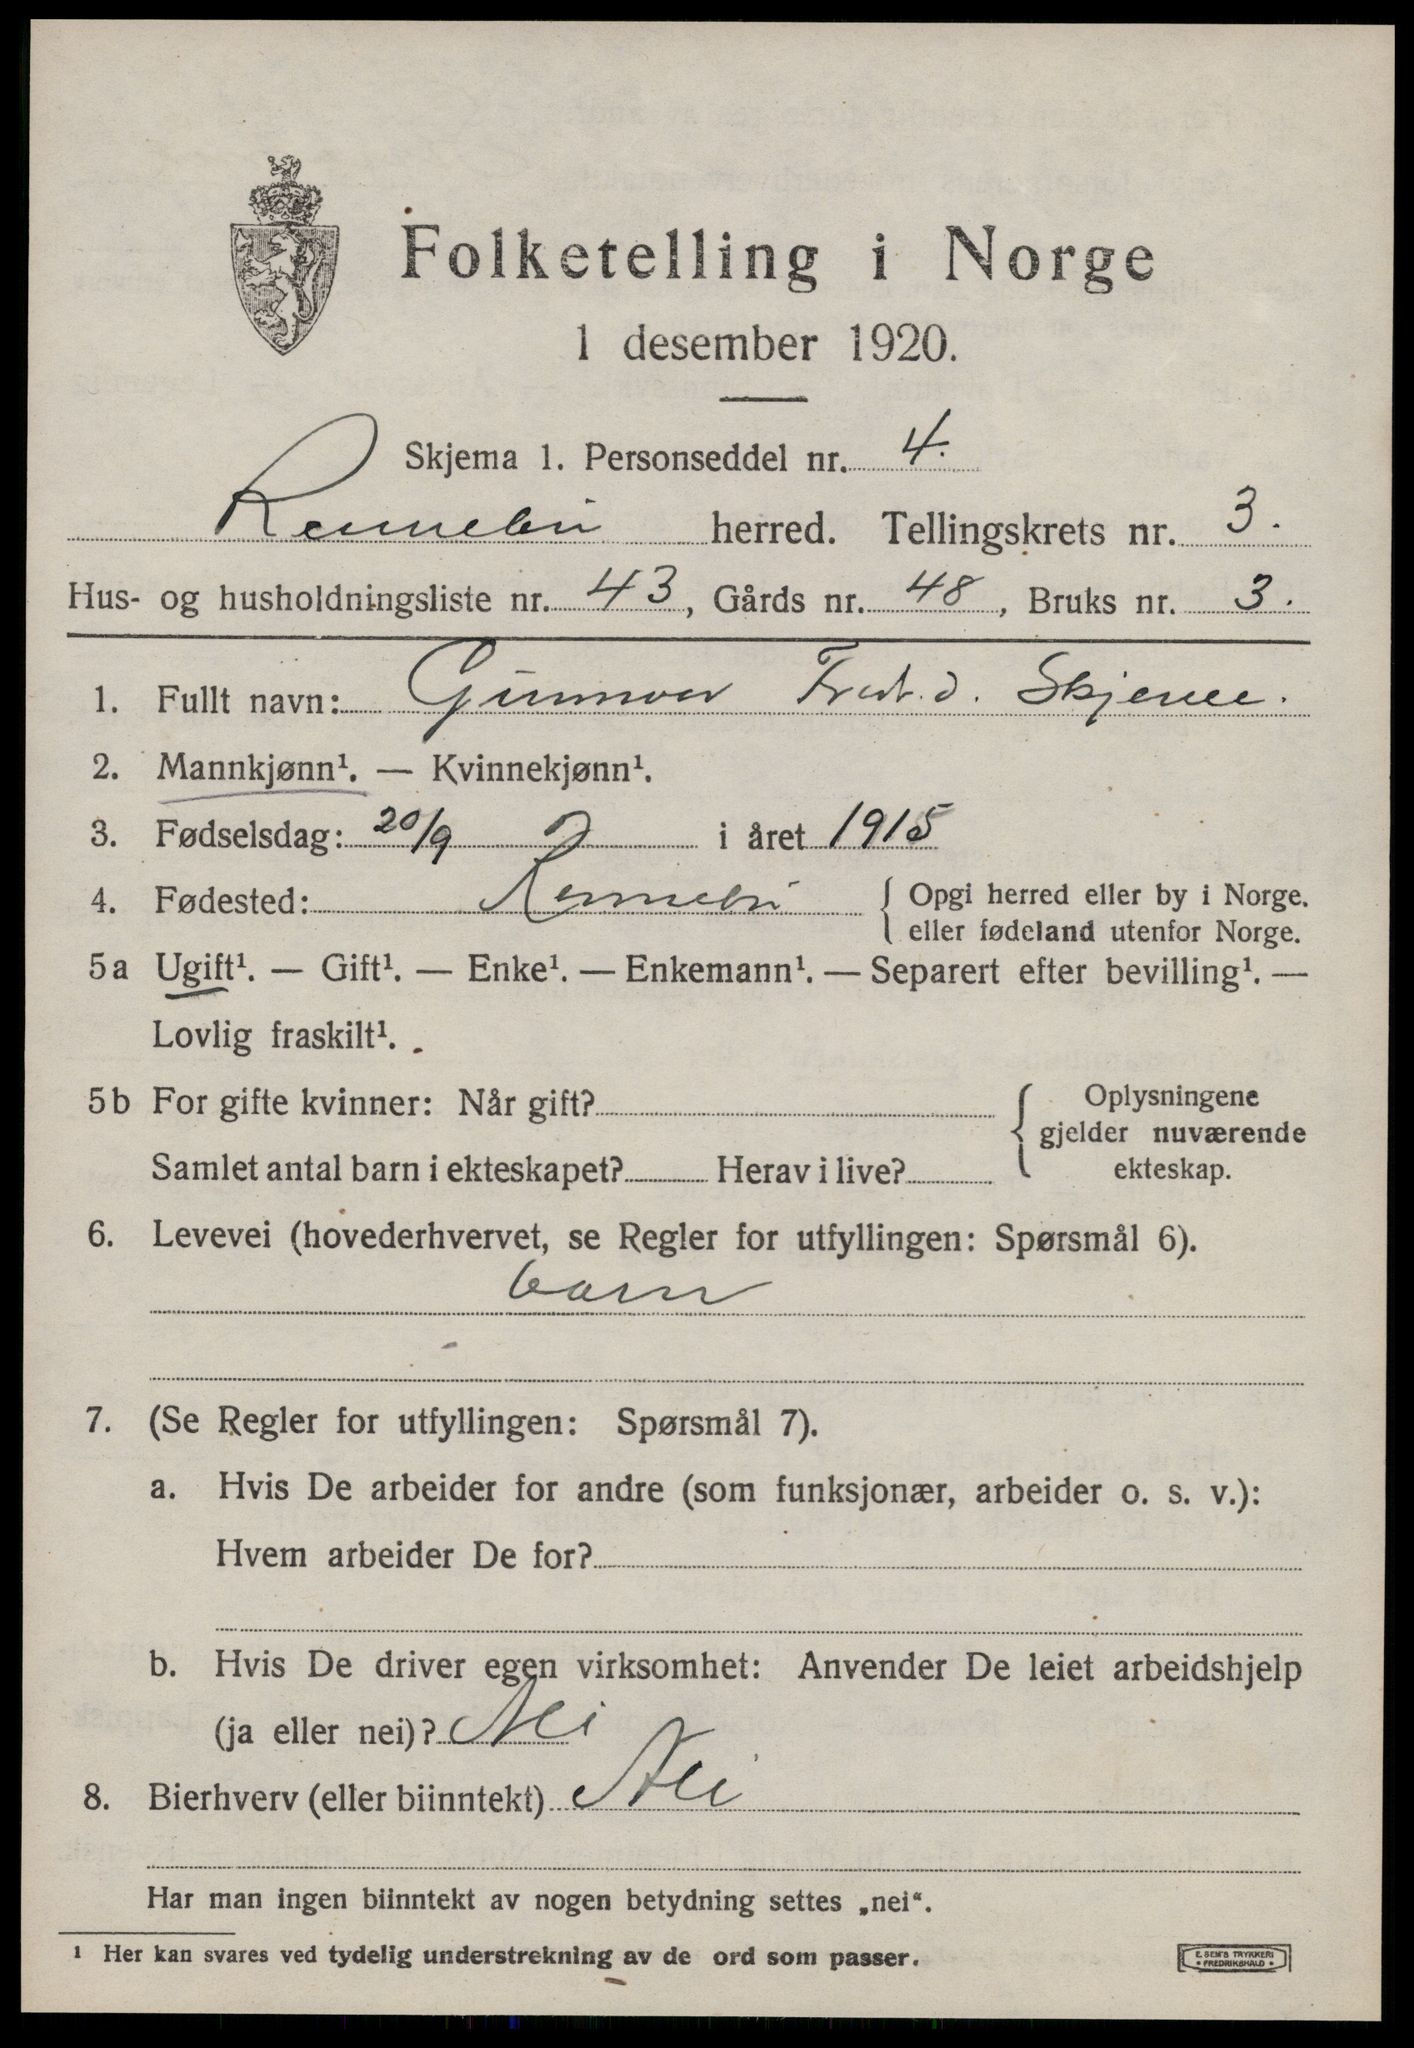 Folketelling i Norge
1 desember 1920.
Skjema 1. Personseddel nr. 4.
Rennebu herred. Tellingskrets nr. 3.
Hus- og husholdningsliste nr. 43, Gårds nr. 48, Bruks nr. 3.
1. Fullt navn: Gunnvor d. Skjerve.
2. Mannkjønn¹. — Kvinnekjønn¹.
3. Fødselsdag: 20/9 i året 1915
4. Fødested: Rennebu { Opgi herred eller by i Norge.
eller fødeland utenfor Norge.
5a Ugift¹. — Gift¹. — Enke¹. — Enkemann¹. — Separert efter bevilling¹. —
Lovlig fraskilt¹.
5b For gifte kvinner: Når gift? { Oplysningene
gjelder nuværende
Samlet antal barn i ekteskapet? Herav i live? ekteskap.
6. Levevei (hovederhvervet, se Regler for utfyllingen: Spørsmål 6).
barn
7. (Se Regler for utfyllingen: Spørsmål 7).
a. Hvis De arbeider for andre (som funksjonær, arbeider o. s. v.):
Hvem arbeider De for?
b. Hvis De driver egen virksomhet: Anvender De leiet arbeidshjelp
(ja eller nei)? Nei
8. Bierhverv (eller biinntekt) Nei
Har man ingen biinntekt av nogen betydning settes „nei“.
¹ Her kan svares ved tydelig understrekning av de ord som passer.
E. SEM'S TRYKKERI
• FREDRIKSHALD •